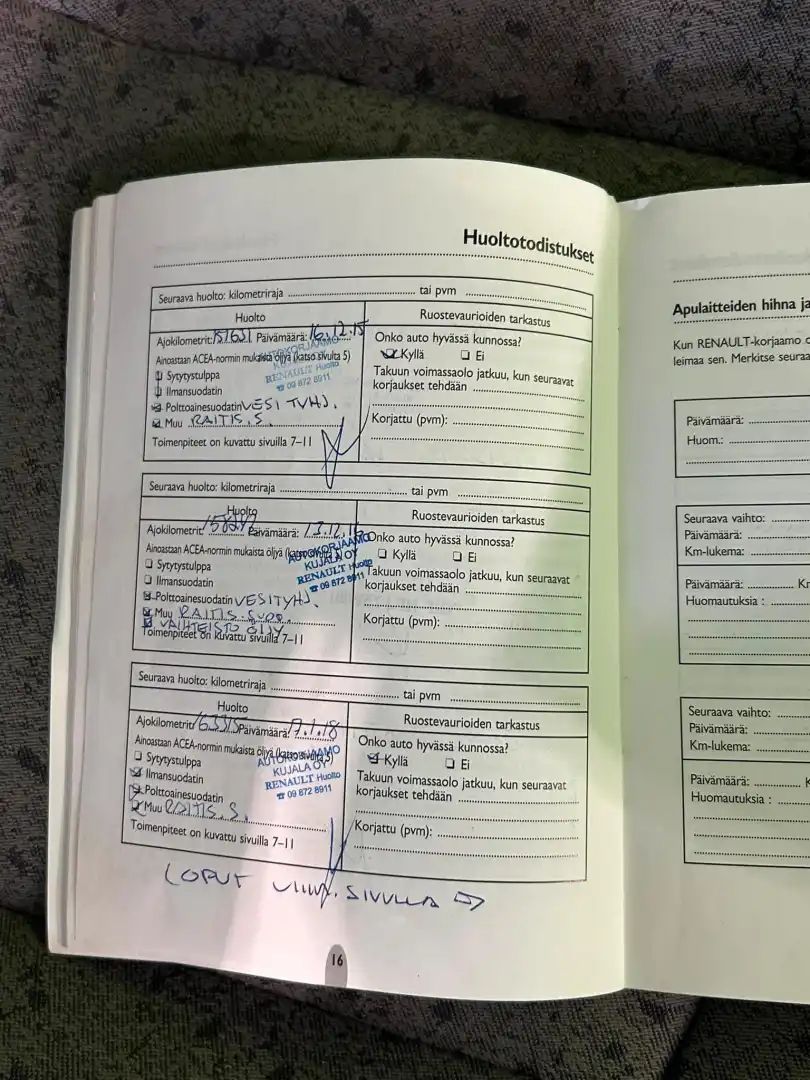 Huoltotodistukset
Seuraava huolto: kilometriraja ........ tai pvm ........
Huolto
Ruostevaurioiden tarkastus
Ajokilometrit: 151631 Päivämäärä: 16.12.15
Ainoastaan ACEA-normin mukaista öljyä (katso sivulta 5)
Sytytystulppa
Ilmansuodatin
Polttoainesuodatin VESI TYHJ.
Muu RAITIS.S.
Toimenpiteet on kuvattu sivuilla 7–11
AUTOKORJAAMO
RENAULT Huolto
☎ 09 872 8911
Onko auto hyvässä kunnossa?
Kyllä Ei
Takuun voimassaolo jatkuu, kun seuraavat
korjaukset tehdään
Korjattu (pvm):
Seuraava huolto: kilometriraja ........ tai pvm ........
Huolto
Ruostevaurioiden tarkastus
Ajokilometrit: Päivämäärä: 13.12.16
Ainoastaan ACEA-normin mukaista öljyä (katso sivulta 5)
Sytytystulppa
Ilmansuodatin
Polttoainesuodatin VESITYHJ.
Muu RAITIS.SUOD.
VAIHTEISTO ÖLJY
Toimenpiteet on kuvattu sivuilla 7–11
AUTOKORJAAMO
KUJALA OY
RENAULT Huolto
☎ 09 872 8911
Onko auto hyvässä kunnossa?
Kyllä Ei
Takuun voimassaolo jatkuu, kun seuraavat
korjaukset tehdään
Korjattu (pvm):
Seuraava huolto: kilometriraja ........ tai pvm ........
Huolto
Ruostevaurioiden tarkastus
Ajokilometrit: 163315 Päivämäärä: 17.1.18
Ainoastaan ACEA-normin mukaista öljyä (katso sivulta 5)
Sytytystulppa
Ilmansuodatin
Polttoainesuodatin
Muu RAITIS.S.
Toimenpiteet on kuvattu sivuilla 7–11
AUTOKORJAAMO
KUJALA OY
RENAULT Huolto
☎ 09 872 8911
Onko auto hyvässä kunnossa?
Kyllä Ei
Takuun voimassaolo jatkuu, kun seuraavat
korjaukset tehdään
Korjattu (pvm):
(OPUT SIVULLA
16
Apulaitteiden hihna ja
Kun RENAULT-korjaamo
leimaa sen. Merkitse seuraa
Päivämäärä:
Huom.:
Seuraava vaihto:
Päivämäärä:
Km-lukema:
Päivämäärä: Kr
Huomautuksia :
Seuraava vaihto:
Päivämäärä:
Km-lukema:
Päivämäärä: K
Huomautuksia :